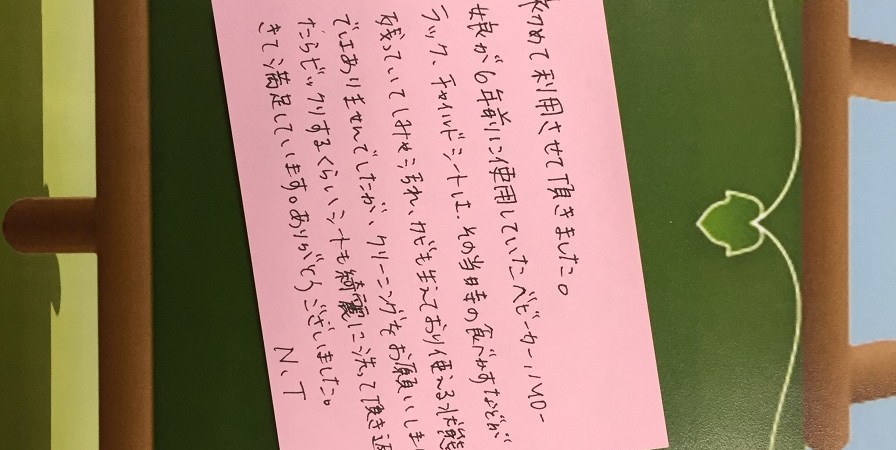 初めて利用させて頂きました。
娘が6年前に使用していたベビーカー、ハロー
ラック、チャイルドシートは、その当時の食べかすなどが
残っていてしみもつられ、カビも生えており使える状態
ではありませんでしたが、クリーニングをお願いしまし
たらビックリするくらいシートも綺麗に洗って頂き返
きて満足しています。ありがとうございました。
N.T